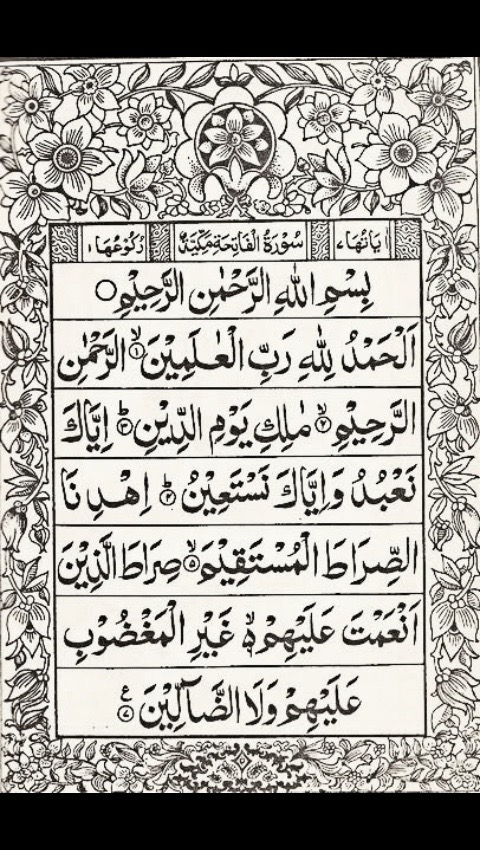 اٰيَاتُهَا ٧ سُوْرَةُ الْفَاتِحَةِ مَكِّيَّةٌ رُكُوْعُهَا ١
بِسْمِ اللّٰهِ الرَّحْمٰنِ الرَّحِيْمِ ○
اَلْحَمْدُ لِلّٰهِ رَبِّ الْعٰلَمِيْنَ ۙ﴿١﴾ الرَّحْمٰنِ
الرَّحِيْمِ ۙ﴿٢﴾ مٰلِكِ يَوْمِ الدِّيْنِ ؕ﴿٣﴾ اِيَّاكَ
نَعْبُدُ وَاِيَّاكَ نَسْتَعِيْنُ ؕ﴿٤﴾ اِهْدِنَا
الصِّرَاطَ الْمُسْتَقِيْمَ ۙ﴿٥﴾ صِرَاطَ الَّذِيْنَ
اَنْعَمْتَ عَلَيْهِمْ ۙ۬﴿٦﴾ غَيْرِ الْمَغْضُوْبِ
عَلَيْهِمْ وَلَا الضَّآلِّيْنَ ﴿٧﴾ ع